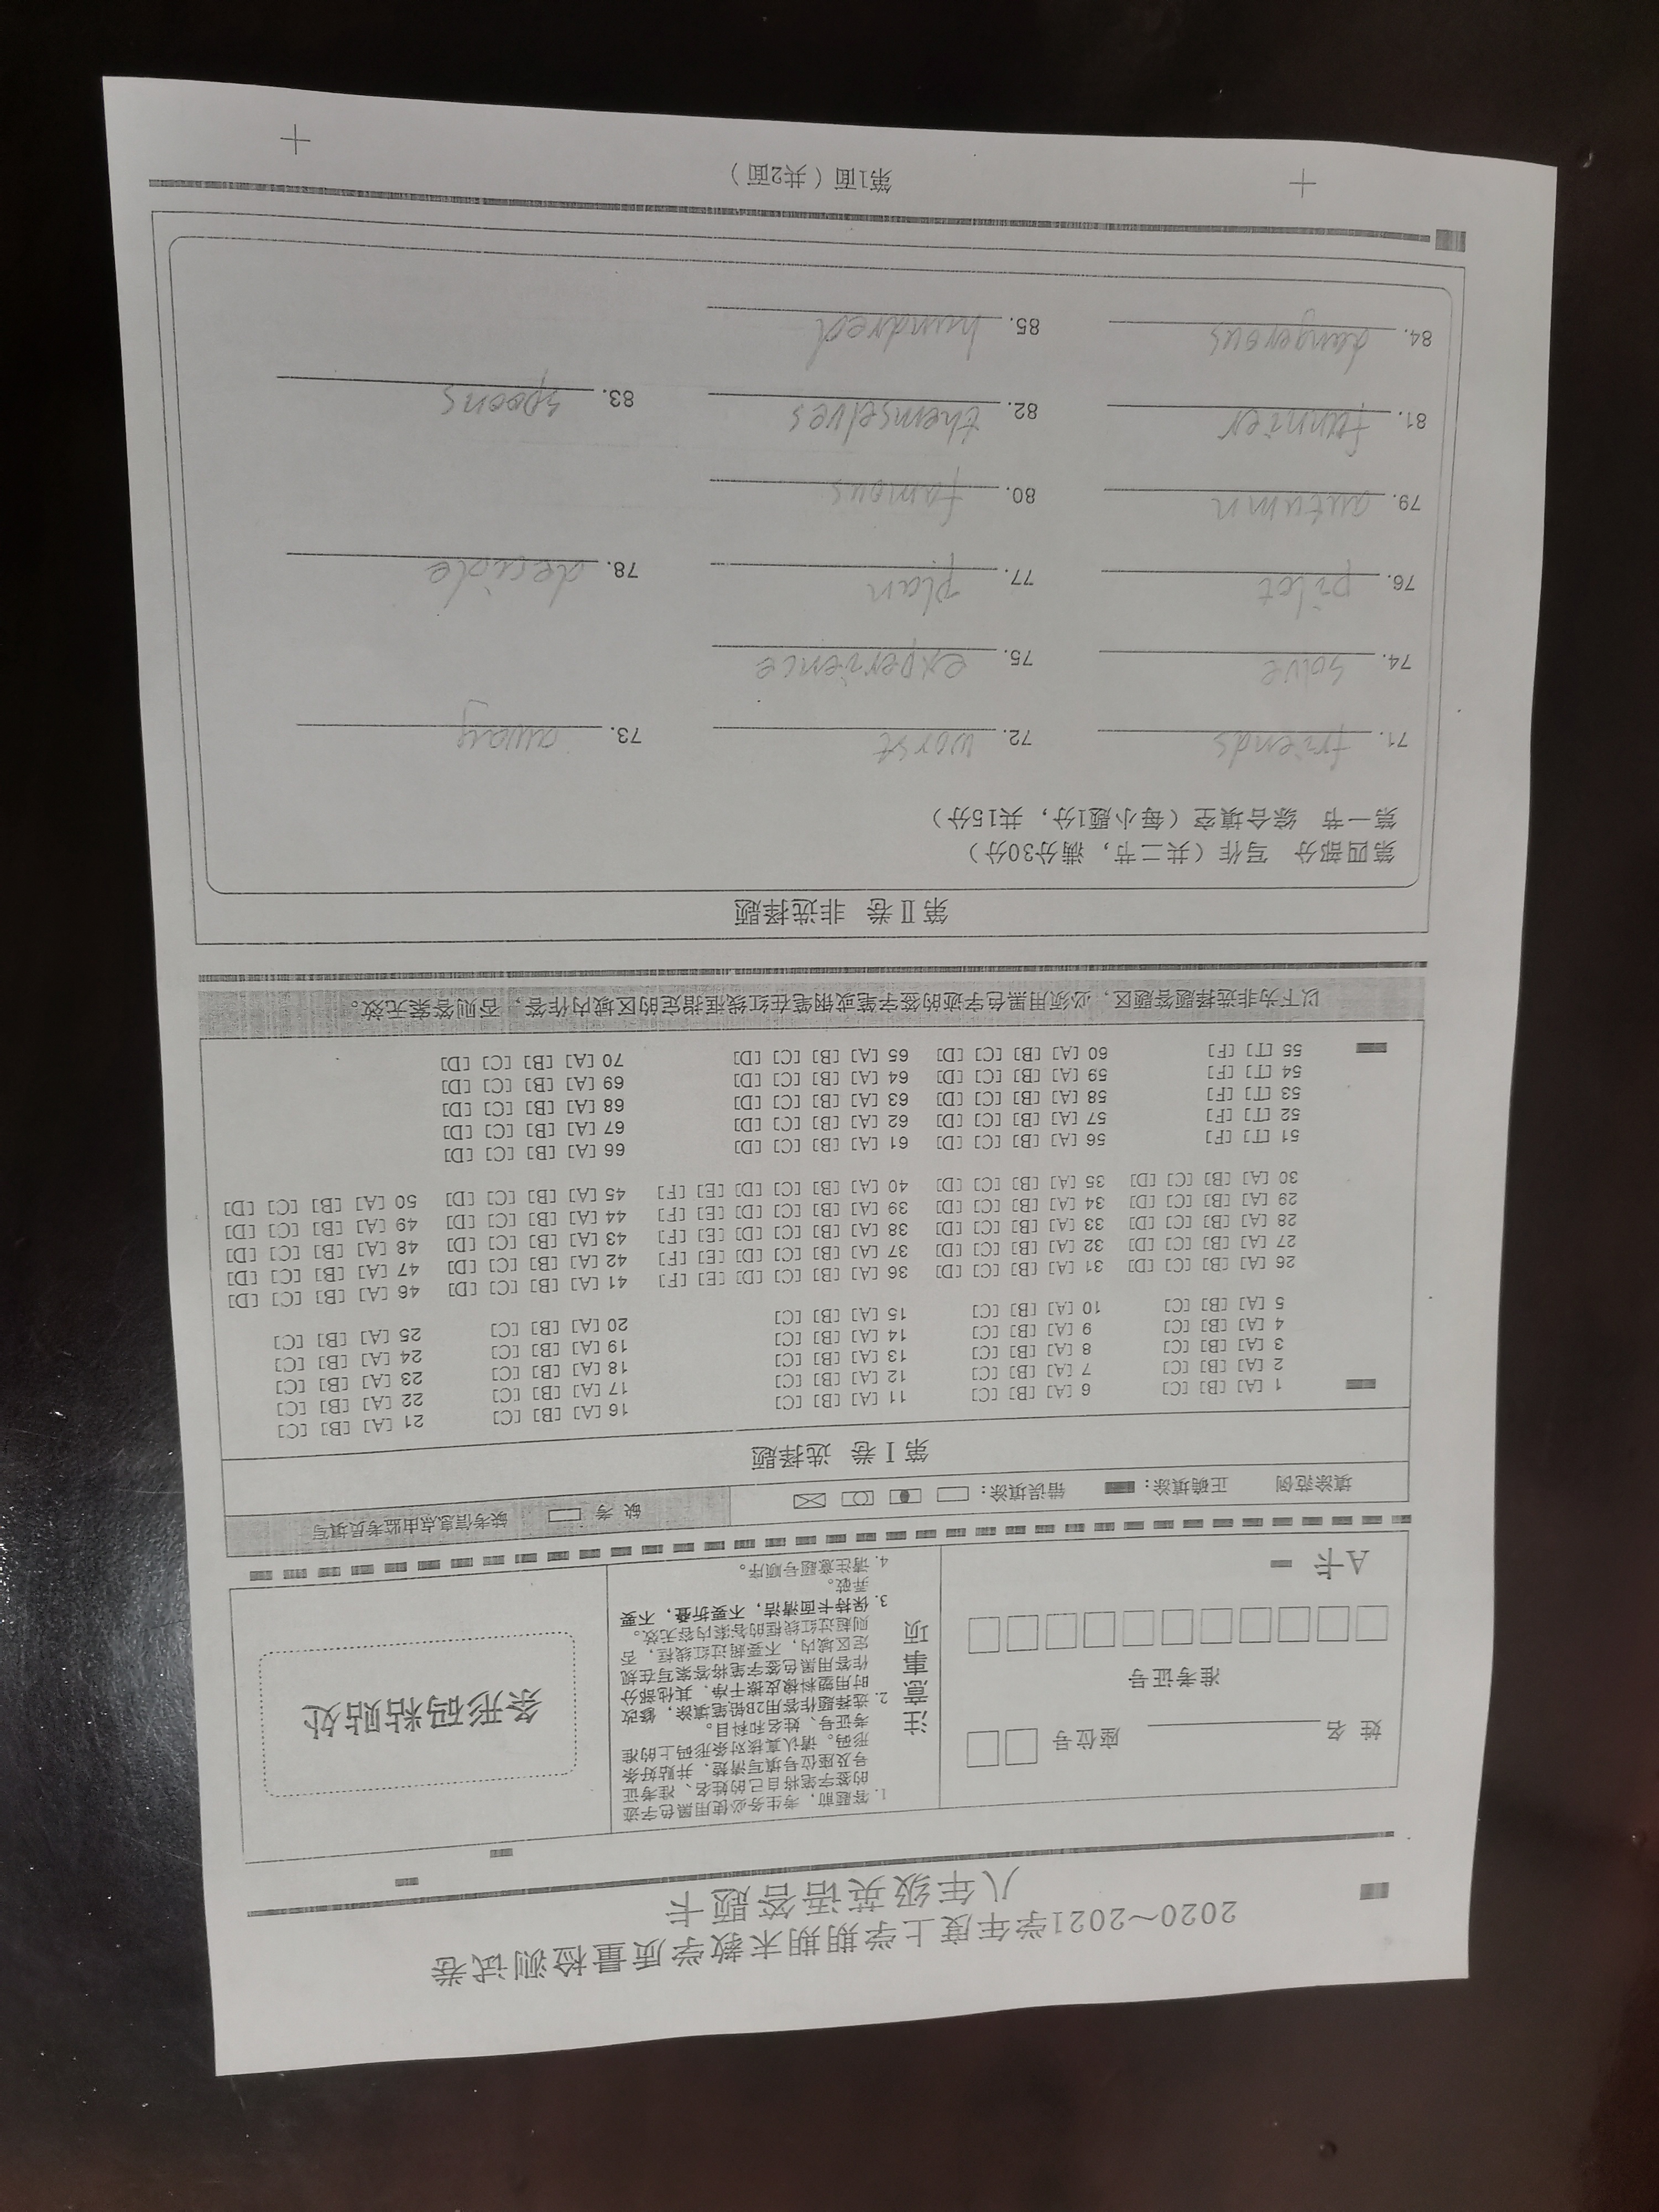 2020～2021学年度上学期期末教学质量检测试卷
八年级英语答题卡
姓 名
座位号
准考证号
A卡
注意事项
1. 答题前，考生务必使用黑色字迹
的签字笔将自己的姓名、准考证
号及座位号填写清楚，并贴好条
形码。请认真核对条形码上的准
考证号、姓名和科目。
2. 选择题作答用2B铅笔填涂，修改
时用塑料橡皮擦干净，其他部分
作答用黑色签字笔将答案写在规
定区域内，不要超过红线框，否
则超过红线框的答案内容无效。
3. 保持卡面清洁，不要折叠，不要
弄破。
4. 请注意题号顺序。
条形码粘贴处
填涂范例 正确填涂： 错误填涂： 缺 考 缺考信息点由监考员填写
第Ⅰ卷 选择题
1 [A] [B] [C] 6 [A] [B] [C] 11 [A] [B] [C] 16 [A] [B] [C] 21 [A] [B] [C]
2 [A] [B] [C] 7 [A] [B] [C] 12 [A] [B] [C] 17 [A] [B] [C] 22 [A] [B] [C]
3 [A] [B] [C] 8 [A] [B] [C] 13 [A] [B] [C] 18 [A] [B] [C] 23 [A] [B] [C]
4 [A] [B] [C] 9 [A] [B] [C] 14 [A] [B] [C] 19 [A] [B] [C] 24 [A] [B] [C]
5 [A] [B] [C] 10 [A] [B] [C] 15 [A] [B] [C] 20 [A] [B] [C] 25 [A] [B] [C]
26 [A] [B] [C] [D] 31 [A] [B] [C] [D] 36 [A] [B] [C] [D] [E] [F] 41 [A] [B] [C] [D] 46 [A] [B] [C] [D]
27 [A] [B] [C] [D] 32 [A] [B] [C] [D] 37 [A] [B] [C] [D] [E] [F] 42 [A] [B] [C] [D] 47 [A] [B] [C] [D]
28 [A] [B] [C] [D] 33 [A] [B] [C] [D] 38 [A] [B] [C] [D] [E] [F] 43 [A] [B] [C] [D] 48 [A] [B] [C] [D]
29 [A] [B] [C] [D] 34 [A] [B] [C] [D] 39 [A] [B] [C] [D] [E] [F] 44 [A] [B] [C] [D] 49 [A] [B] [C] [D]
30 [A] [B] [C] [D] 35 [A] [B] [C] [D] 40 [A] [B] [C] [D] [E] [F] 45 [A] [B] [C] [D] 50 [A] [B] [C] [D]
51 [T] [F] 56 [A] [B] [C] [D] 61 [A] [B] [C] [D] 66 [A] [B] [C] [D]
52 [T] [F] 57 [A] [B] [C] [D] 62 [A] [B] [C] [D] 67 [A] [B] [C] [D]
53 [T] [F] 58 [A] [B] [C] [D] 63 [A] [B] [C] [D] 68 [A] [B] [C] [D]
54 [T] [F] 59 [A] [B] [C] [D] 64 [A] [B] [C] [D] 69 [A] [B] [C] [D]
55 [T] [F] 60 [A] [B] [C] [D] 65 [A] [B] [C] [D] 70 [A] [B] [C] [D]
以下为非选择题答题区，必须用黑色字迹的签字笔或钢笔在红线框指定的区域内作答，否则答案无效。
第Ⅱ卷 非选择题
第四部分 写作（共二节，满分30分）
第一节 综合填空（每小题1分，共15分）
71. friends 72. worst 73. away
74. solve 75. experience
76. pilot 77. plan 78. decide
79. autumn 80. famous
81. funnier 82. themselves 83. spoons
84. dangerous 85. hundred
第1面（共2面）